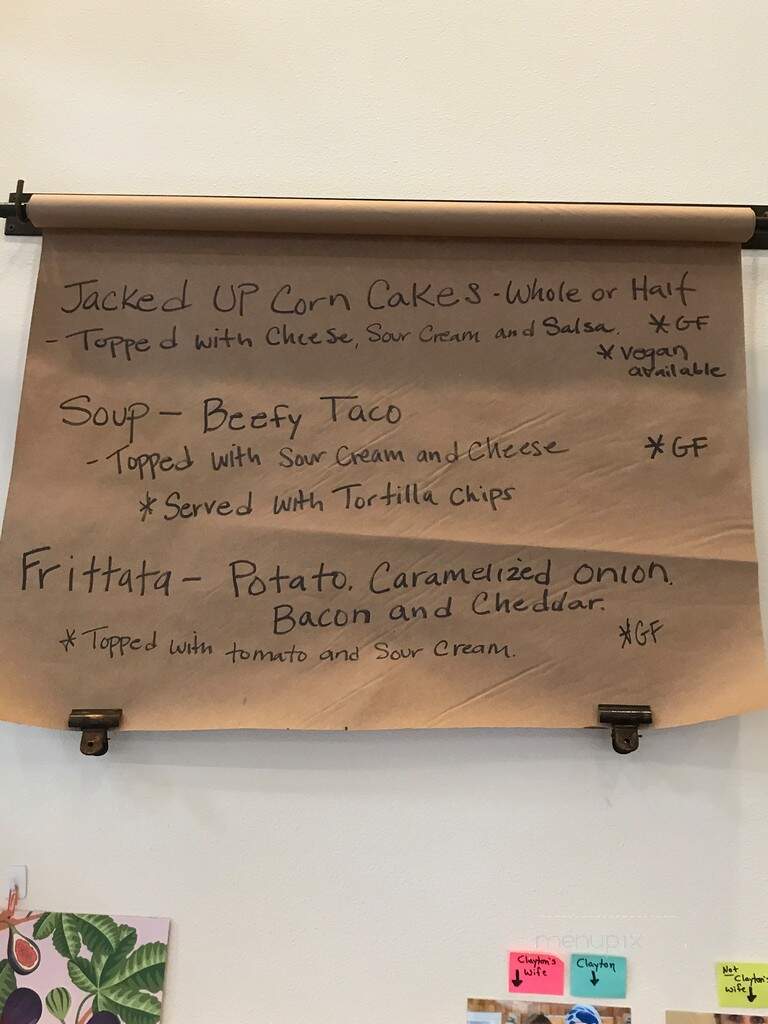 Jacked UP Corn Cakes - Whole or Half
- Topped with Cheese, Sour Cream and Salsa. *GF
* vegan
available
Soup - Beefy Taco
- Topped with Sour Cream and Cheese *GF
* Served with Tortilla Chips
Frittata - Potato. Caramelized Onion.
Bacon and Cheddar.
* Topped with tomato and Sour Cream. *GF
menupix
Clayton's
Wife
Clayton
Not
Clayton's
Wife